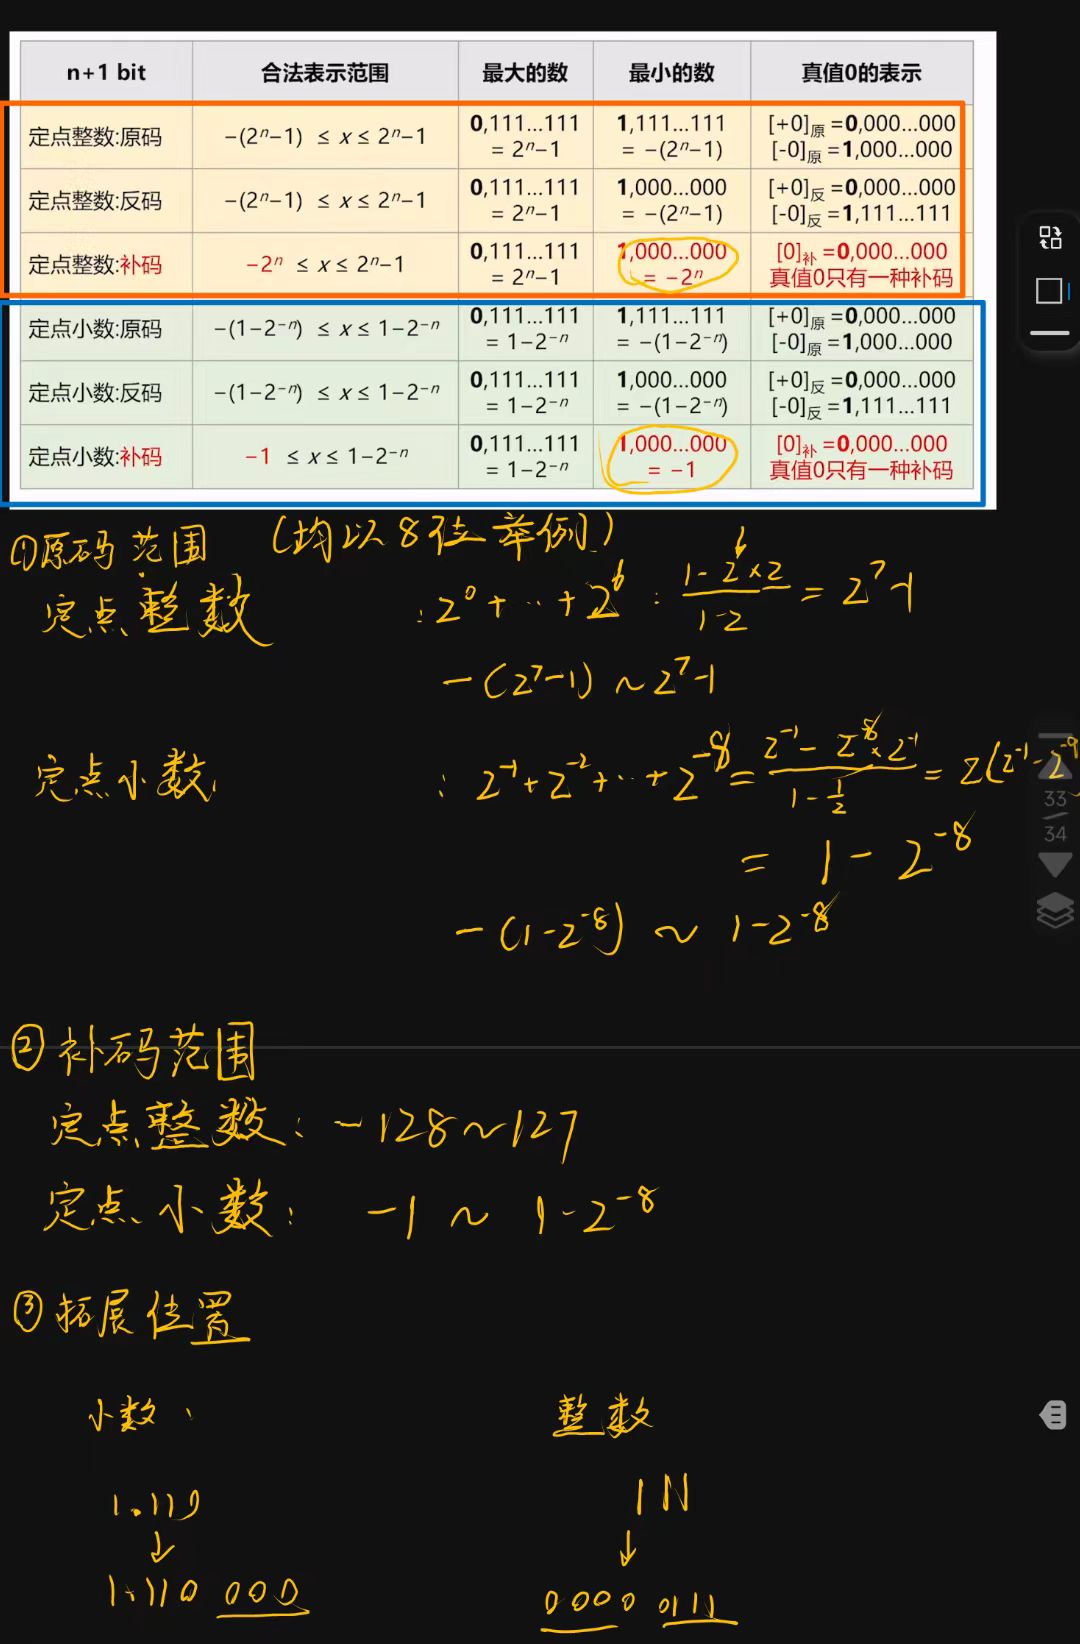 n+1 bit 合法表示范围 最大的数 最小的数 真值0的表示
定点整数:原码 −(2ⁿ−1) ≤ x ≤ 2ⁿ−1 0,111...111 = 2ⁿ−1 1,111...111 = −(2ⁿ−1) [+0]原 =0,000...000 [-0]原 =1,000...000
定点整数:反码 −(2ⁿ−1) ≤ x ≤ 2ⁿ−1 0,111...111 = 2ⁿ−1 1,000...000 = −(2ⁿ−1) [+0]反 =0,000...000 [-0]反 =1,111...111
定点整数:补码 −2ⁿ ≤ x ≤ 2ⁿ−1 0,111...111 = 2ⁿ−1 1,000...000 = −2ⁿ [0]补 =0,000...000 真值0只有一种补码
定点小数:原码 −(1−2⁻ⁿ) ≤ x ≤ 1−2⁻ⁿ 0,111...111 = 1−2⁻ⁿ 1,111...111 = −(1−2⁻ⁿ) [+0]原 =0,000...000 [-0]原 =1,000...000
定点小数:反码 −(1−2⁻ⁿ) ≤ x ≤ 1−2⁻ⁿ 0,111...111 = 1−2⁻ⁿ 1,000...000 = −(1−2⁻ⁿ) [+0]反 =0,000...000 [-0]反 =1,111...111
定点小数:补码 −1 ≤ x ≤ 1−2⁻ⁿ 0,111...111 = 1−2⁻ⁿ 1,000...000 = −1 [0]补 =0,000...000 真值0只有一种补码
①原码范围 (均以8位举例)
定点整数 : 2⁰+…+2⁶ : (1-2⁶×2)/(1-2) = 2⁷-1
-(2⁷-1) ~ 2⁷-1
定点小数 : 2⁻¹+2⁻²+…+2⁻⁸ = (2⁻¹-2⁻⁸×2⁻¹)/(1-1/2) = 2(2⁻¹-2⁻⁹
= 1-2⁻⁸
-(1-2⁻⁸) ~ 1-2⁻⁸
33
34
②补码范围
定点整数: -128~127
定点小数: -1 ~ 1-2⁻⁸
③拓展位置
小数: 整数
1.110 111
↓ ↓
1.110 000 0000 0111